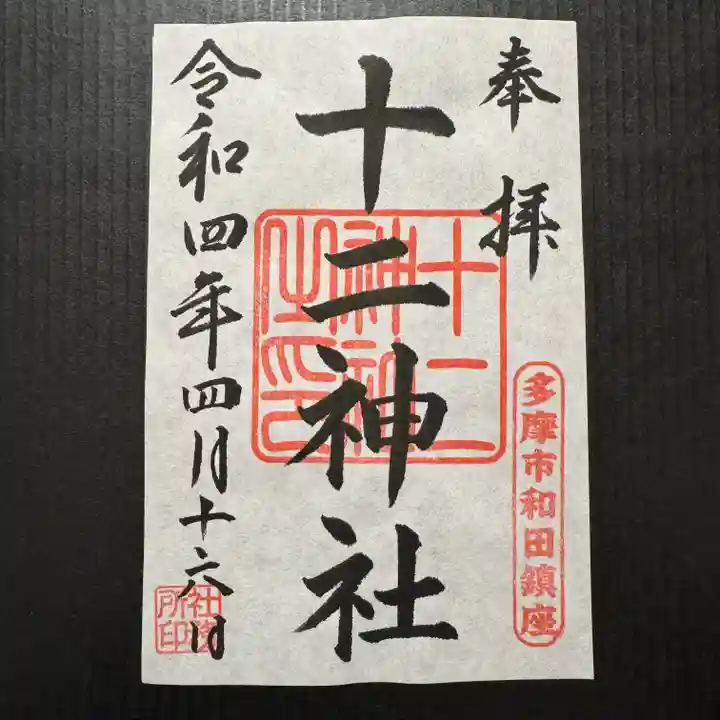 奉拝
多摩市和田鎮座
十二神社
十二神社之印
令和四年四月十六日
社務所印